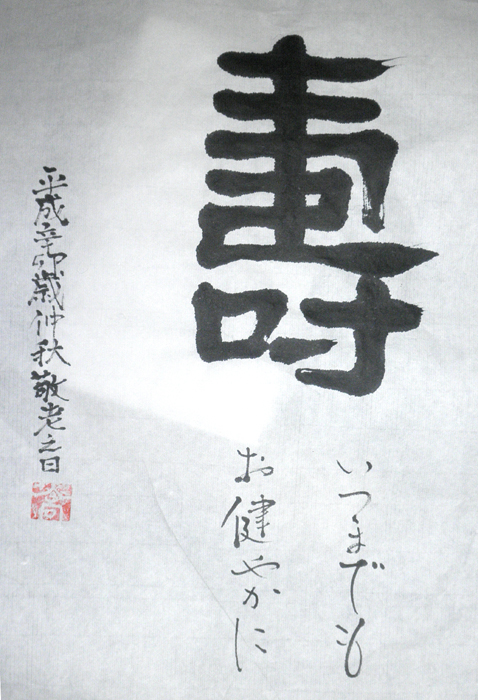 壽
いつまでも
お健やかに
平成辛卯歳仲秋敬老之日